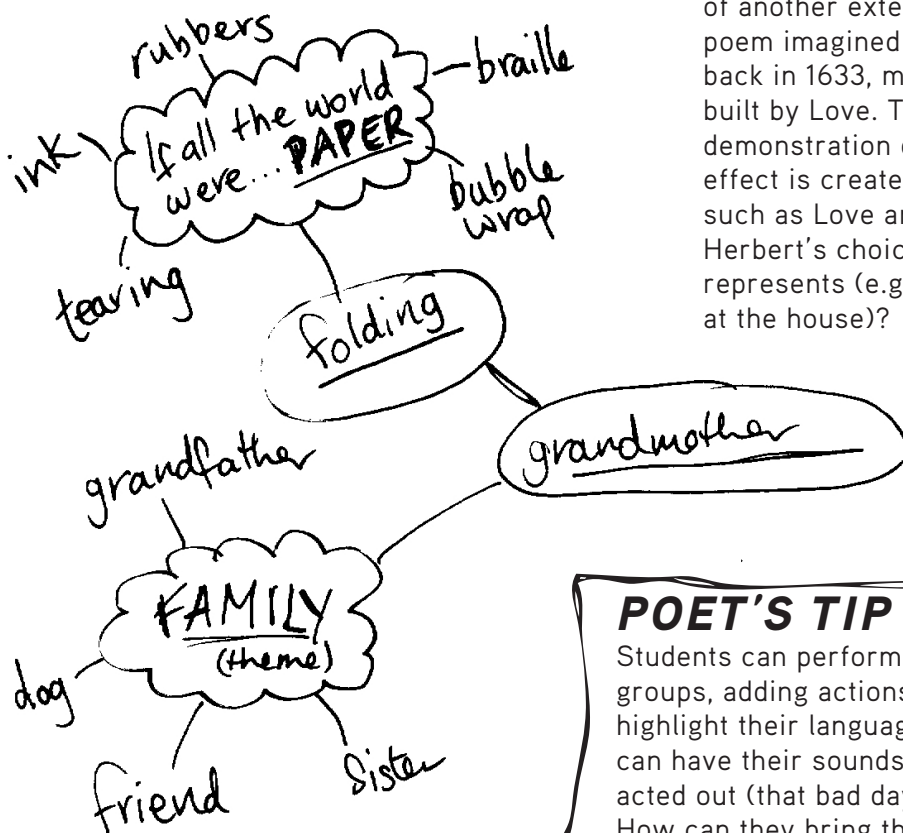 rubbers
braille
ink
If all the world
were... PAPER
bubble
wrap
tearing
folding
grandmother
grandfather
FAMILY
(theme)
dog
friend
Sister
of another exte
poem imagined
back in 1633, m
built by Love. T
demonstration
effect is create
such as Love a
Herbert's choic
represents (e.g
at the house)?
POET'S TIP
Students can perform
groups, adding actions
highlight their languag
can have their sounds
acted out (that bad da
How can they bring th